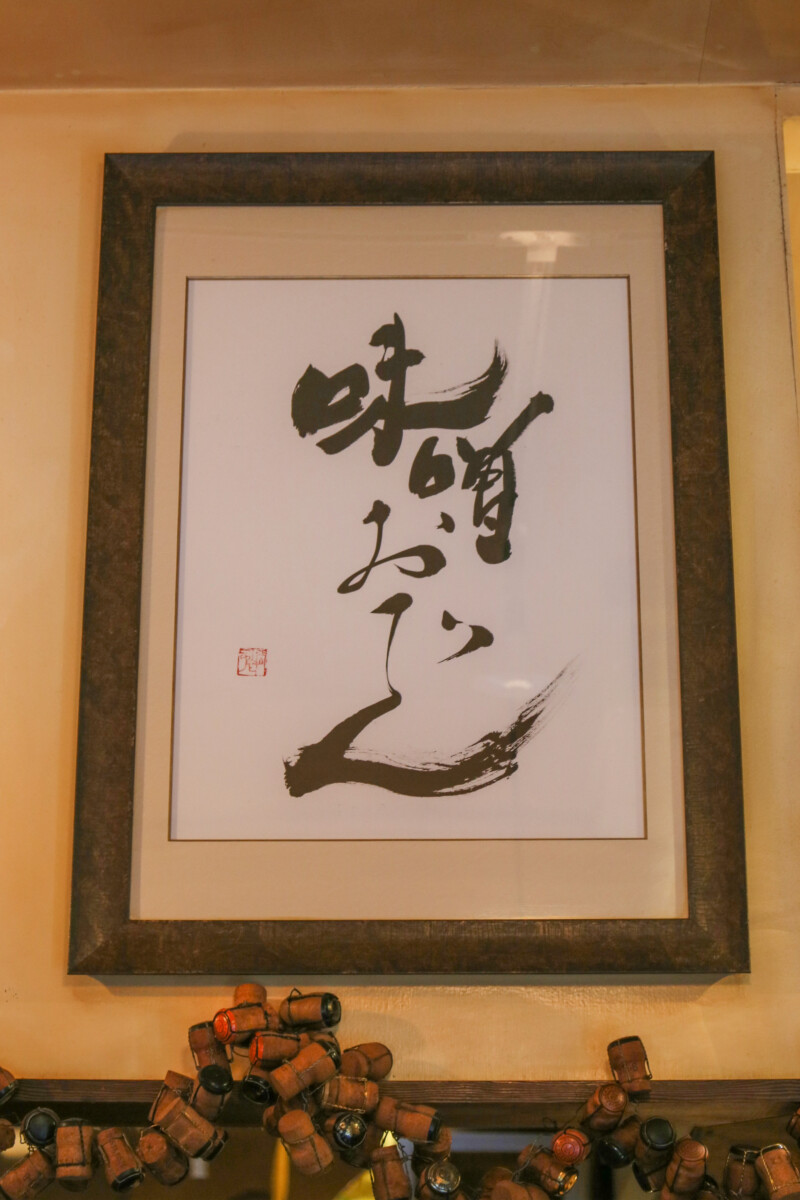 味噌
おでん